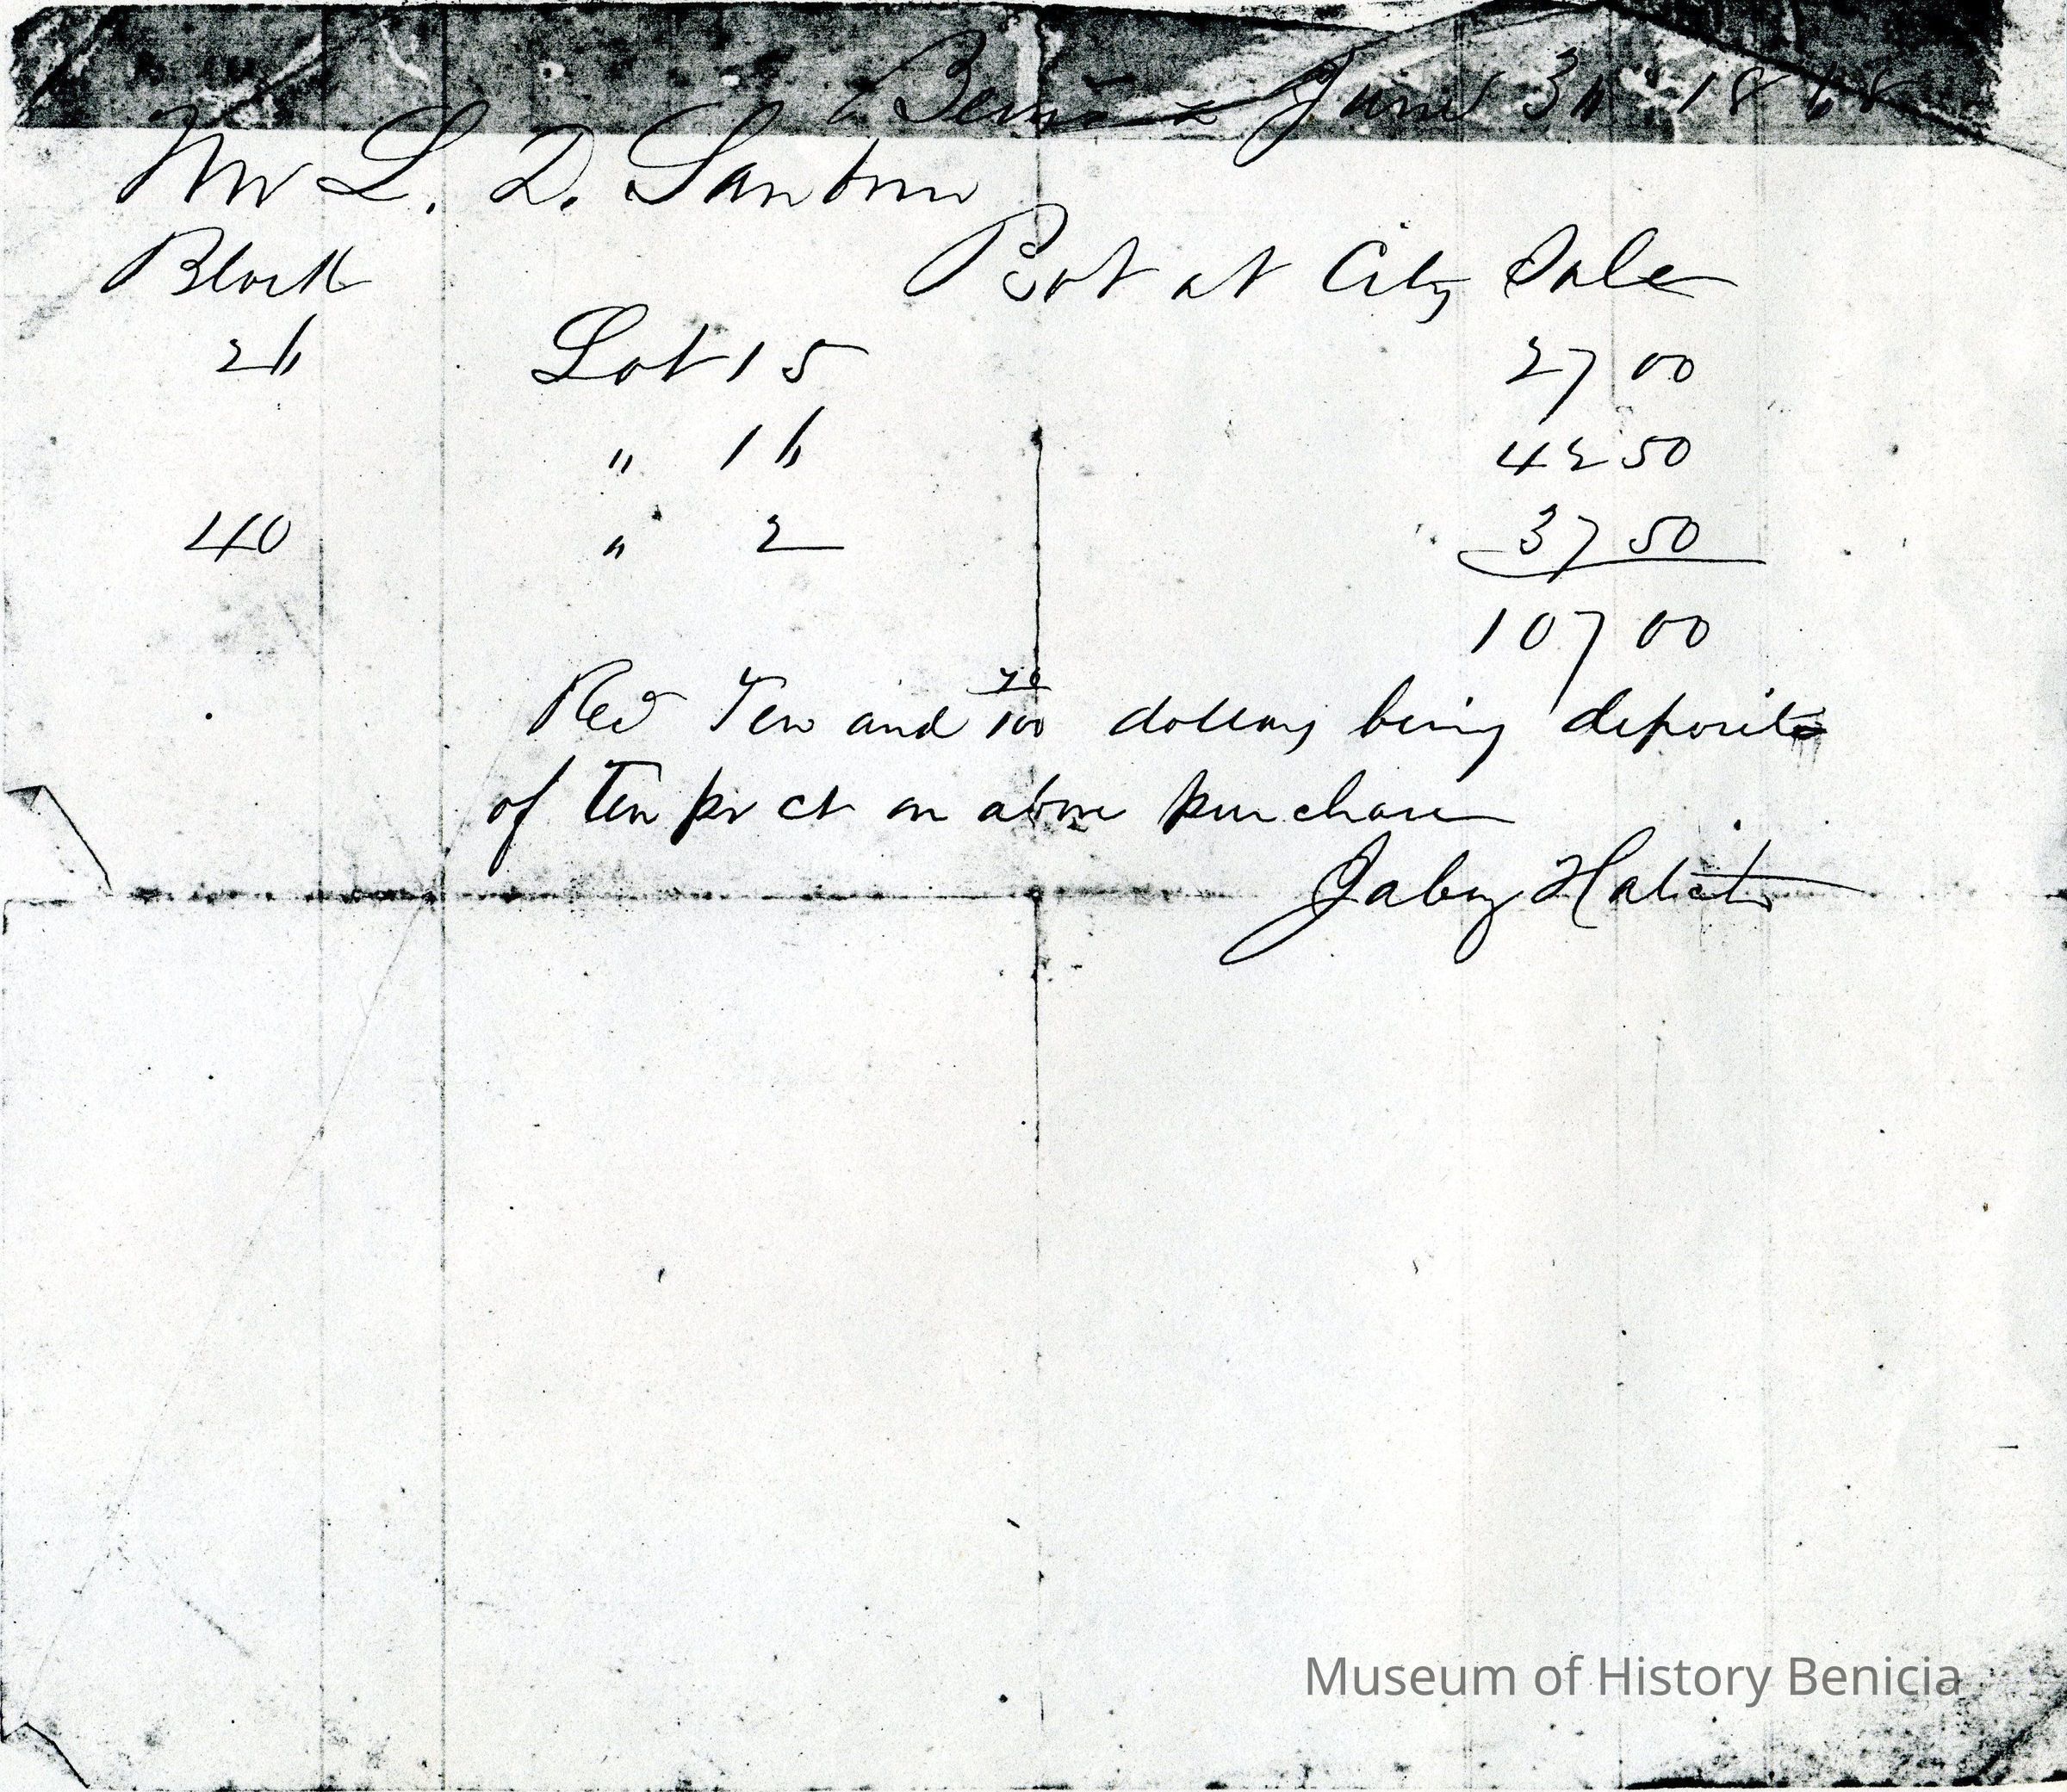 Benicia June 30 1868
Mr L. D. Sanborn
Block Bot at City Sale
26 Lot 15 27 00
" 16 42 50
40 " 2 37 50
107 00
Recd Ten and 70/100 dollars being deposit
of Ten pr ct on above purchase
Jabez Hatch
Museum of History Benicia